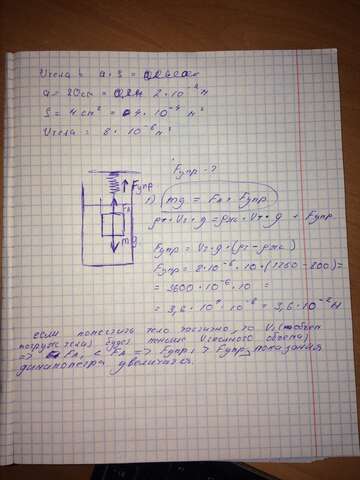 Vтела = a · S =
a = 20см = 2 · 10⁻¹ м
S = 4 см² = 4 · 10⁻⁴ м²
Vтела = 8 · 10⁻⁶ м³
Fупр - ?
1) mg = FA + Fупр
ρт · Vт · g = ρж · Vт · g + Fупр
Fупр = Vт · g · (ρт - ρж)
Fупр = 8 · 10⁻⁶ · 10 · (1250 - 800) =
= 3600 · 10⁻⁶ · 10 =
= 3,6 · 10⁴ · 10⁻⁶ = 3,6 · 10⁻² Н
Fупр
FA
mg
если поместить тело частично, то V1 (объем
погруж тела) будет меньше V (полного объема)
=> FA1 < FA => Fупр1 > Fупр, показания
динамометра увеличатся.